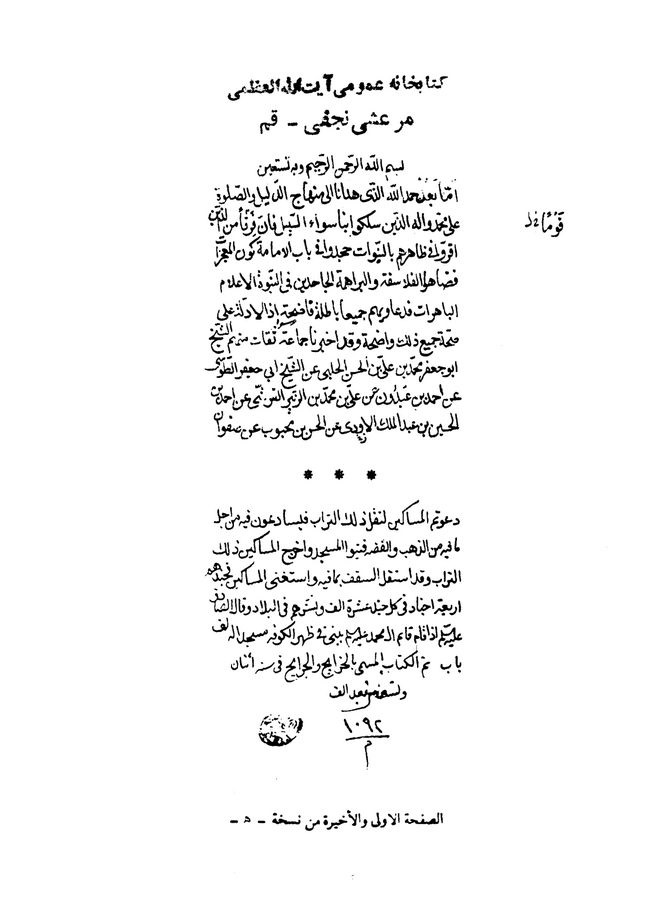 كتابخانه عمومى آيت الله العظمى
مرعشى نجفى - قم
بسم الله الرحمن الرحيم وبه نستعين
امّا بعد حمد الله الذى هدانا الى منهاج الدليل والصلوة
على محمد واله الذين سلكوا بنا سواء السبيل فان فرقا من الذين
قومًا خ‍ل
اقروا فى ظاهرهم بالنبوات جحدوا فى باب الامامة كون المعجزات
فضاهوا الفلاسفة والبراهمة الجاحدين فى النبوة الاعلام
الباهرات فدعاويهم جميعا باطلة فاضحة إذ الادلة على
صحة جميع ذلك واضحة وقد اخبرنا جماعة ثقات منهم الشيخ
ابو جعفر محمد بن على بن المحسن الحلبى عن الشيخ ابى جعفر الطوسى
عن احمد بن عبدون عن على بن محمد بن الزبير القرشى عن احمد بن
الحسين بن عبد الملك الاودى عن الحسن بن محبوب عن صفوان
* * *
دعوتم المساكين لنقل ذلك التراب فيسادعون فيه من اجل
ما فيه من الذهب والفضه فبنوا المسجد واخرج المساكين ذلك
التراب وقد استقل السقف بما فيه واستغنى المساكين فجندهم
اربعة اجناد فى كل جند عشرة الف ونشرهم فى البلاد وقال الصادق
عليه السلم اذا قام قائم ال محمد عليهم السلم بنى فى ظهر الكوفه مسجدا له الف
باب تم الكتاب المسمى بالخرايج والجرايح فى سنه اثنان
وتسعين بعد الف
١٠٩٢
م
الصفحة الاولى والأخيرة من نسخة - ه -